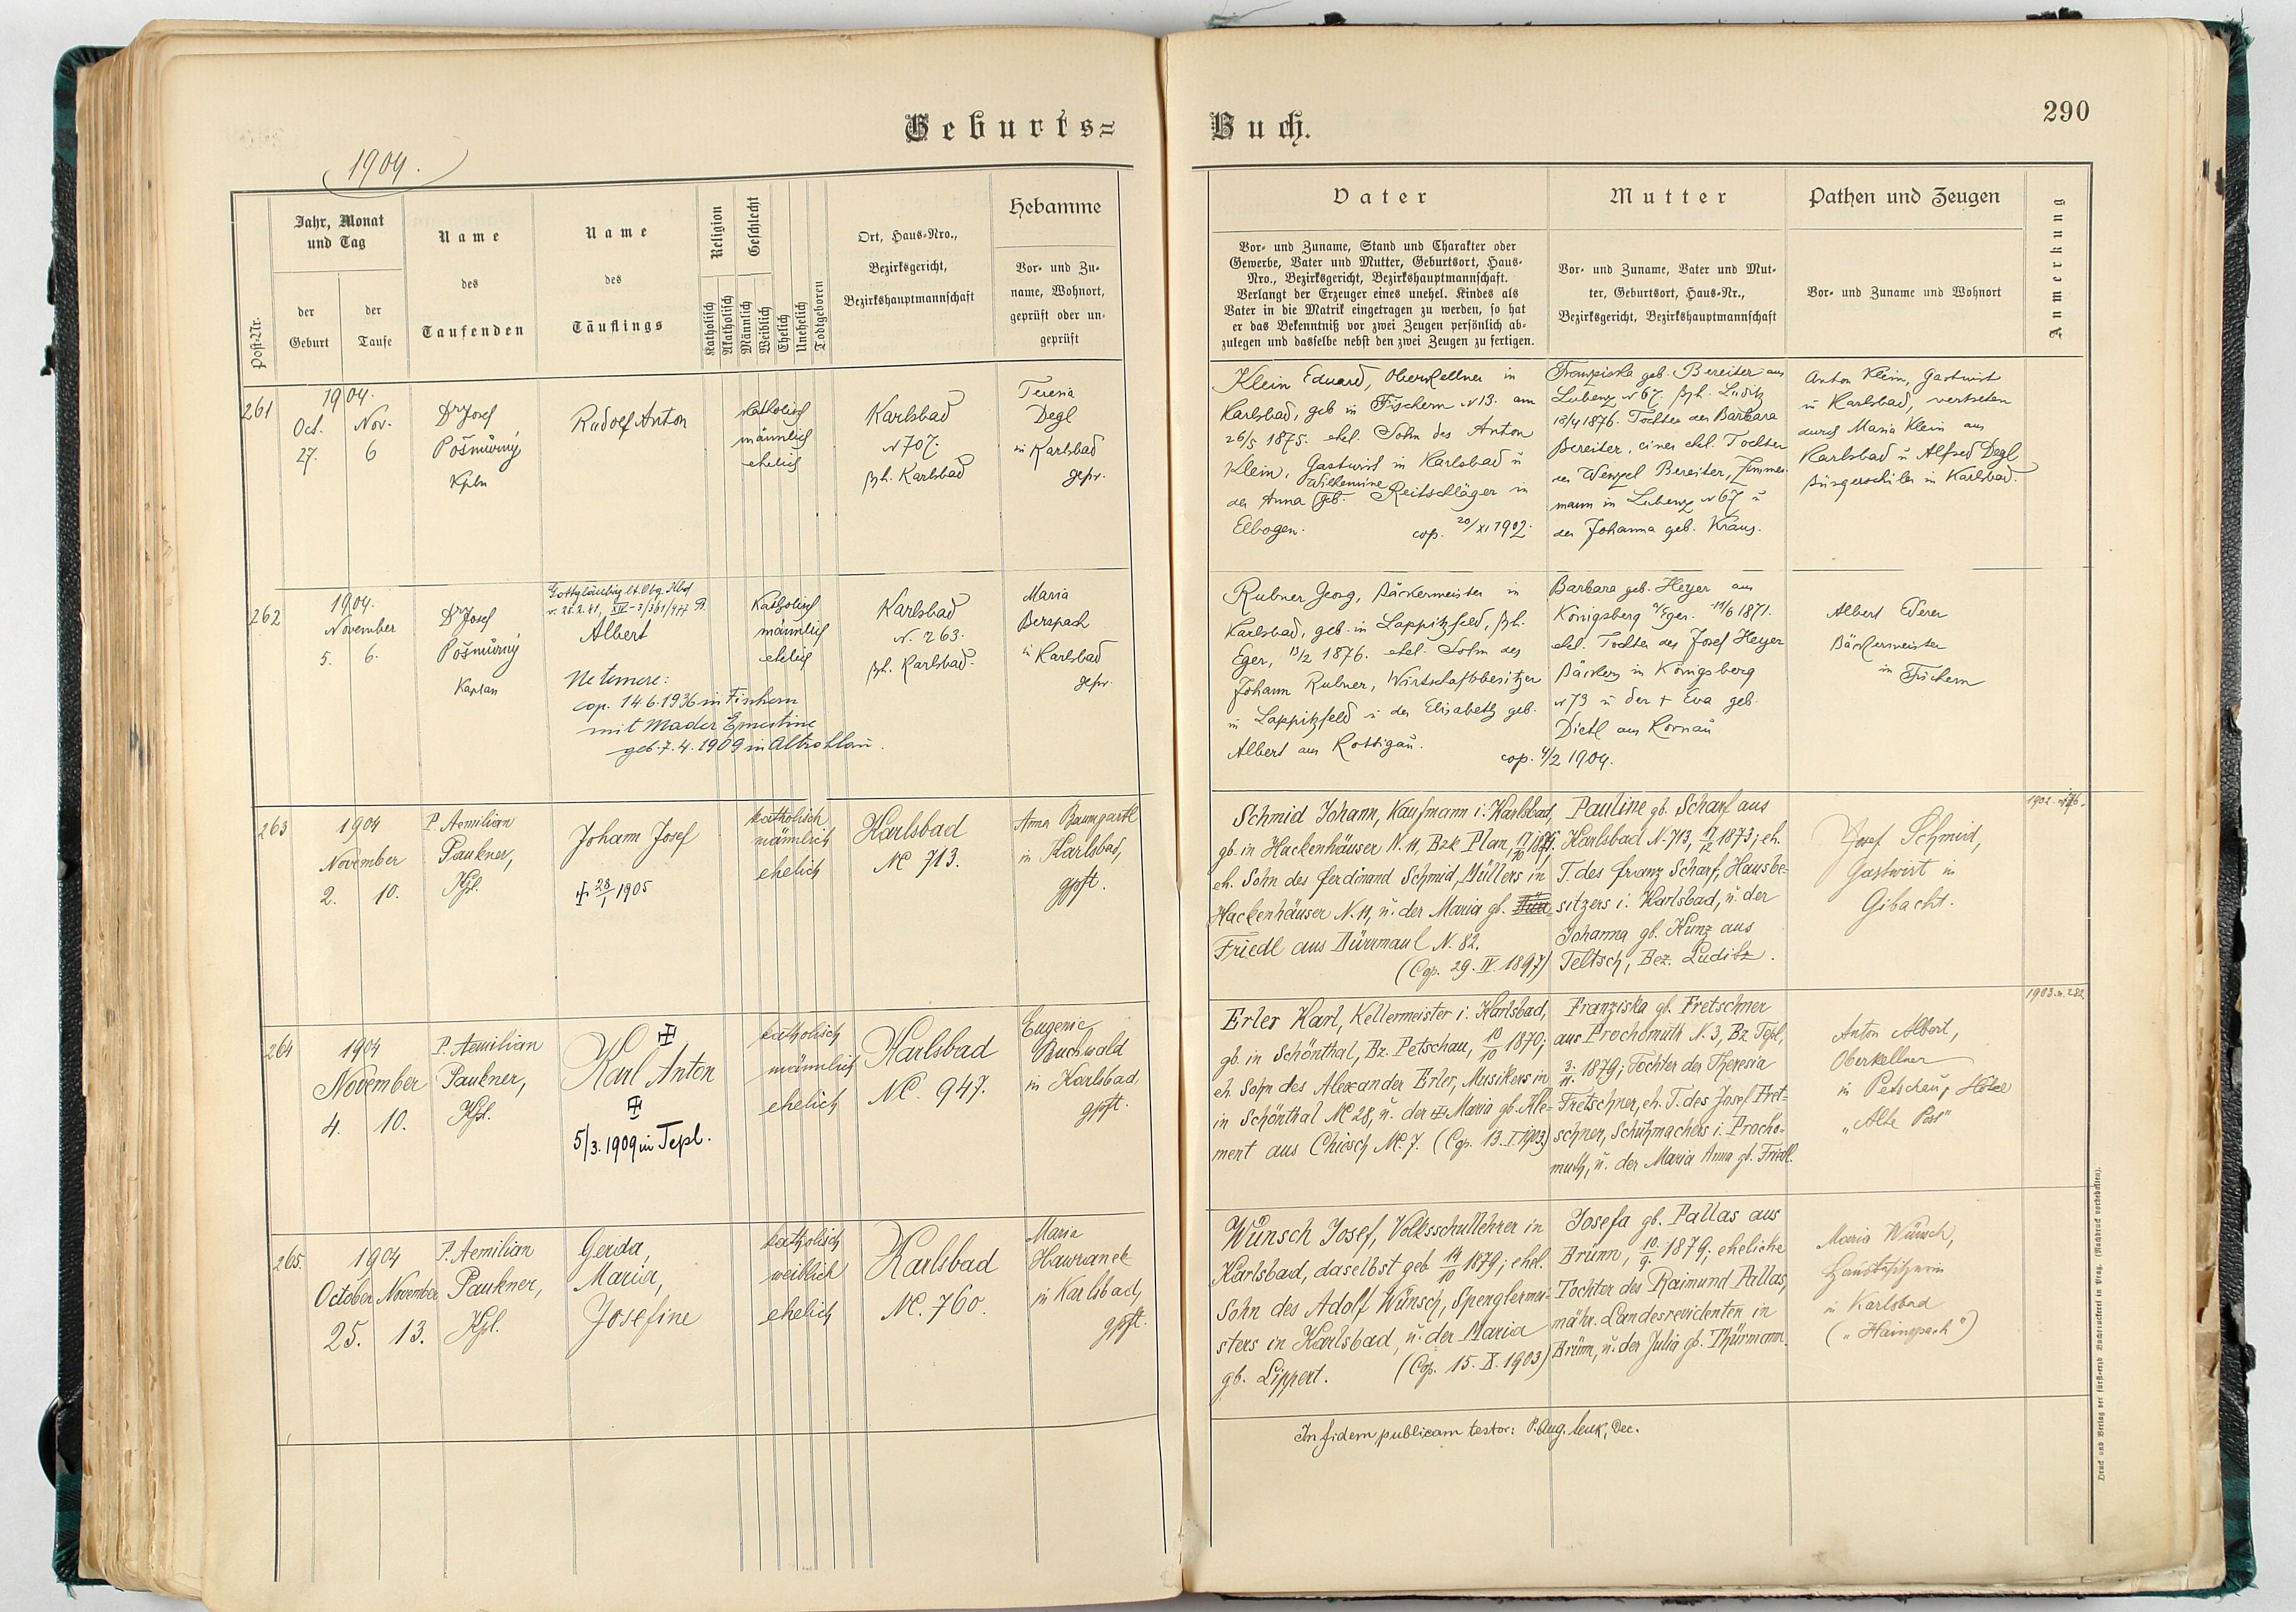 Geburts=
Buch.
290
1904.
Post-Nr.
Jahr, Monat
und Tag
der
Geburt
der
Taufe
Name
des
Taufenden
Name
des
Täuflings
Religion
Katholisch
Akatholisch
Geschlecht
Männlich
Weiblich
Ehelich
Unehelich
Todtgeboren
Ort, Haus-Nro.,
Bezirksgericht,
Bezirkshauptmannschaft
Hebamme
Vor- und Zu-
name, Wohnort,
geprüft oder un-
geprüft
Vater
Vor- und Zuname, Stand und Charakter oder
Gewerbe, Vater und Mutter, Geburtsort, Haus-
Nro., Bezirksgericht, Bezirkshauptmannschaft.
Verlangt der Erzeuger eines unehel. Kindes als
Vater in die Matrik eingetragen zu werden, so hat
er das Bekenntniß vor zwei Zeugen persönlich ab-
zulegen und dasselbe nebst den zwei Zeugen zu fertigen.
Mutter
Vor- und Zuname, Vater und Mut-
ter, Geburtsort, Haus-Nr.,
Bezirksgericht, Bezirkshauptmannschaft
Pathen und Zeugen
Vor- und Zuname und Wohnort
Anmerkung
261
1904.
Oct.
27.
Nov.
6
Dr Josef
Pošmůrný
Kpln
Rudolf Anton
katholisch
männlich
ehelich
Karlsbad
N 707.
Bzh. Karlsbad
Teresia
Degl
in Karlsbad
gepr.
Klein Eduard, Oberkellner in
Karlsbad, geb in Fischern N 13. am
26/5 1875. ehel. Sohn des Anton
Klein, Gastwirt in Karlsbad u
der Anna Wilhemine geb. Reitschläger in
Elbogen. cop. 20/XI 1902.
Franziska geb. Bereiter aus
Lubenz N 67. Bzh. Luditz
/4 1876. Tochter der Barbara
Bereiter, einer ehel. Tochter
des Wenzel Bereiter, Zimmer-
mann in Lubenz N 67 u
der Johanna geb. Kraus.
Anton Klein, Gastwirt
in Karlsbad, vertreten
durch Maria Klein aus
Karlsbad u Alfred Degl
Bürgerschüler in Karlsbad.
262
1904.
November
5. 6.
Dr Josef
Pošmůrný
Kaplan
Gottgläubig lt. Obg. Kbd
v. 28.2.41, XIV-3/361/477
Albert
Ne temere:
cop. 14.6.1936 in Fischern
mit Mader Ernestine
geb. 7.4.1909 in Altrohlau.
Katholisch
männlich
ehelich
Karlsbad
N. 263.
Bzh. Karlsbad.
Maria
Berspach
in Karlsbad
gepr.
Rubner Georg, Bäckermeister in
Karlsbad, geb. in Lappitzfeld, Bzh.
Eger, 13/2 1876. ehel. Sohn des
Johann Rubner, Wirtschaftsbesitzer
in Lappitzfeld u der Elisabeth geb.
Albert aus Rossigau.
Barbara geb. Heyer aus
Königsberg a/Eger. 14/6 1871.
ehel. Tochter des Josef Heyer
Bäckers in Königsberg
N 73 u der + Eva geb.
Dietl aus Kornau
cop. 4/2 1904.
Albert Ederer
Bäckermeister
in Fischern
263
1904
November
2. 10.
P. Aemilian
Paukner,
Kpl.
Johann Josef
+ 28/1 1905
katholisch
männlich
ehelich
Karlsbad
NC 713.
Anna Baumgartl
in Karlsbad,
gpft.
Schmid Johann, Kaufmann i. Karlsbad,
gb. in Hackenhäuser N. 11, Bzk Plan,
eh. Sohn des Ferdinand Schmid, Müllers in
Hackenhäuser N. 11, u. der Maria gb.
Friedl aus Dürrmaul N. 82.
(Cop. 29. IV. 1897)
Pauline gb. Scharf aus
Karlsbad N. 713, 17/12 1873; eh.
T. des Franz Scharf, Hausbe-
sitzers i. Karlsbad, u. der
Johanna gb. Kunz aus
Teltsch, Bez. Luditz.
Josef Schmid,
Gastwirt in
Gibacht.
1902.
264
1904
November
4. 10.
P. Aemilian
Paukner,
Kpl.
Karl Anton
5/3. 1909 in Tepl.
katholisch
männlich
ehelich
Karlsbad
NC. 947.
Eugenie
Buchwald
in Karlsbad,
gpft.
Erler Karl, Kellermeister i. Karlsbad,
gb. in Schönthal, Bz. Petschau, 10/10 1870;
eh. Sohn des Alexander Erler, Musikers in
in Schönthal NC 28, u. der + Maria gb. Kle-
ment aus Chiesch NC. 7. (Cop. 13. I. 1903)
Franziska gb. Fretschner
aus Prochomuth N. 3, Bz Tepl,
3./11. 1879; Tochter der Theresia
Fretschner, eh. T. des Josef Fret-
schner, Schuhmachers i. Procho-
muth, u. der Maria Anna gb. Friedl.
Anton Albert,
Oberkellner
in Petschau, Hôtel
„Alte Post"
1903. n. 282
265.
1904
October
25.
November
13.
P. Aemilian
Paukner,
Kpl.
Gerda,
Maria,
Josefine
katholisch
weiblich
ehelich
Karlsbad
NC. 760.
Maria
Hawranek
in Karlsbad,
gpft.
Wünsch Josef, Volksschullehrer in
Karlsbad, daselbst geb 14/10 1879; ehel.
Sohn des Adolf Wünsch, Spenglermei-
sters in Karlsbad, u. der Maria
gb. Lippert. (Cop. 15. X. 1903)
Josefa gb. Pallas aus
Brünn, 10./9. 1879; eheliche
Tochter des Raimund Pallas,
mähr. Landesrevidenten in
Brünn, u. der Julia gb. Thürmann.
Maria Wünsch,
Hausbesitzerin
in Karlsbad
(„Hainspach")
In fidem publicam testor: P. Aug. Dec.
Druck und Verlag der fürst-erzb Buchdruckerei in Prag. (Nachdruck vorbehalten).